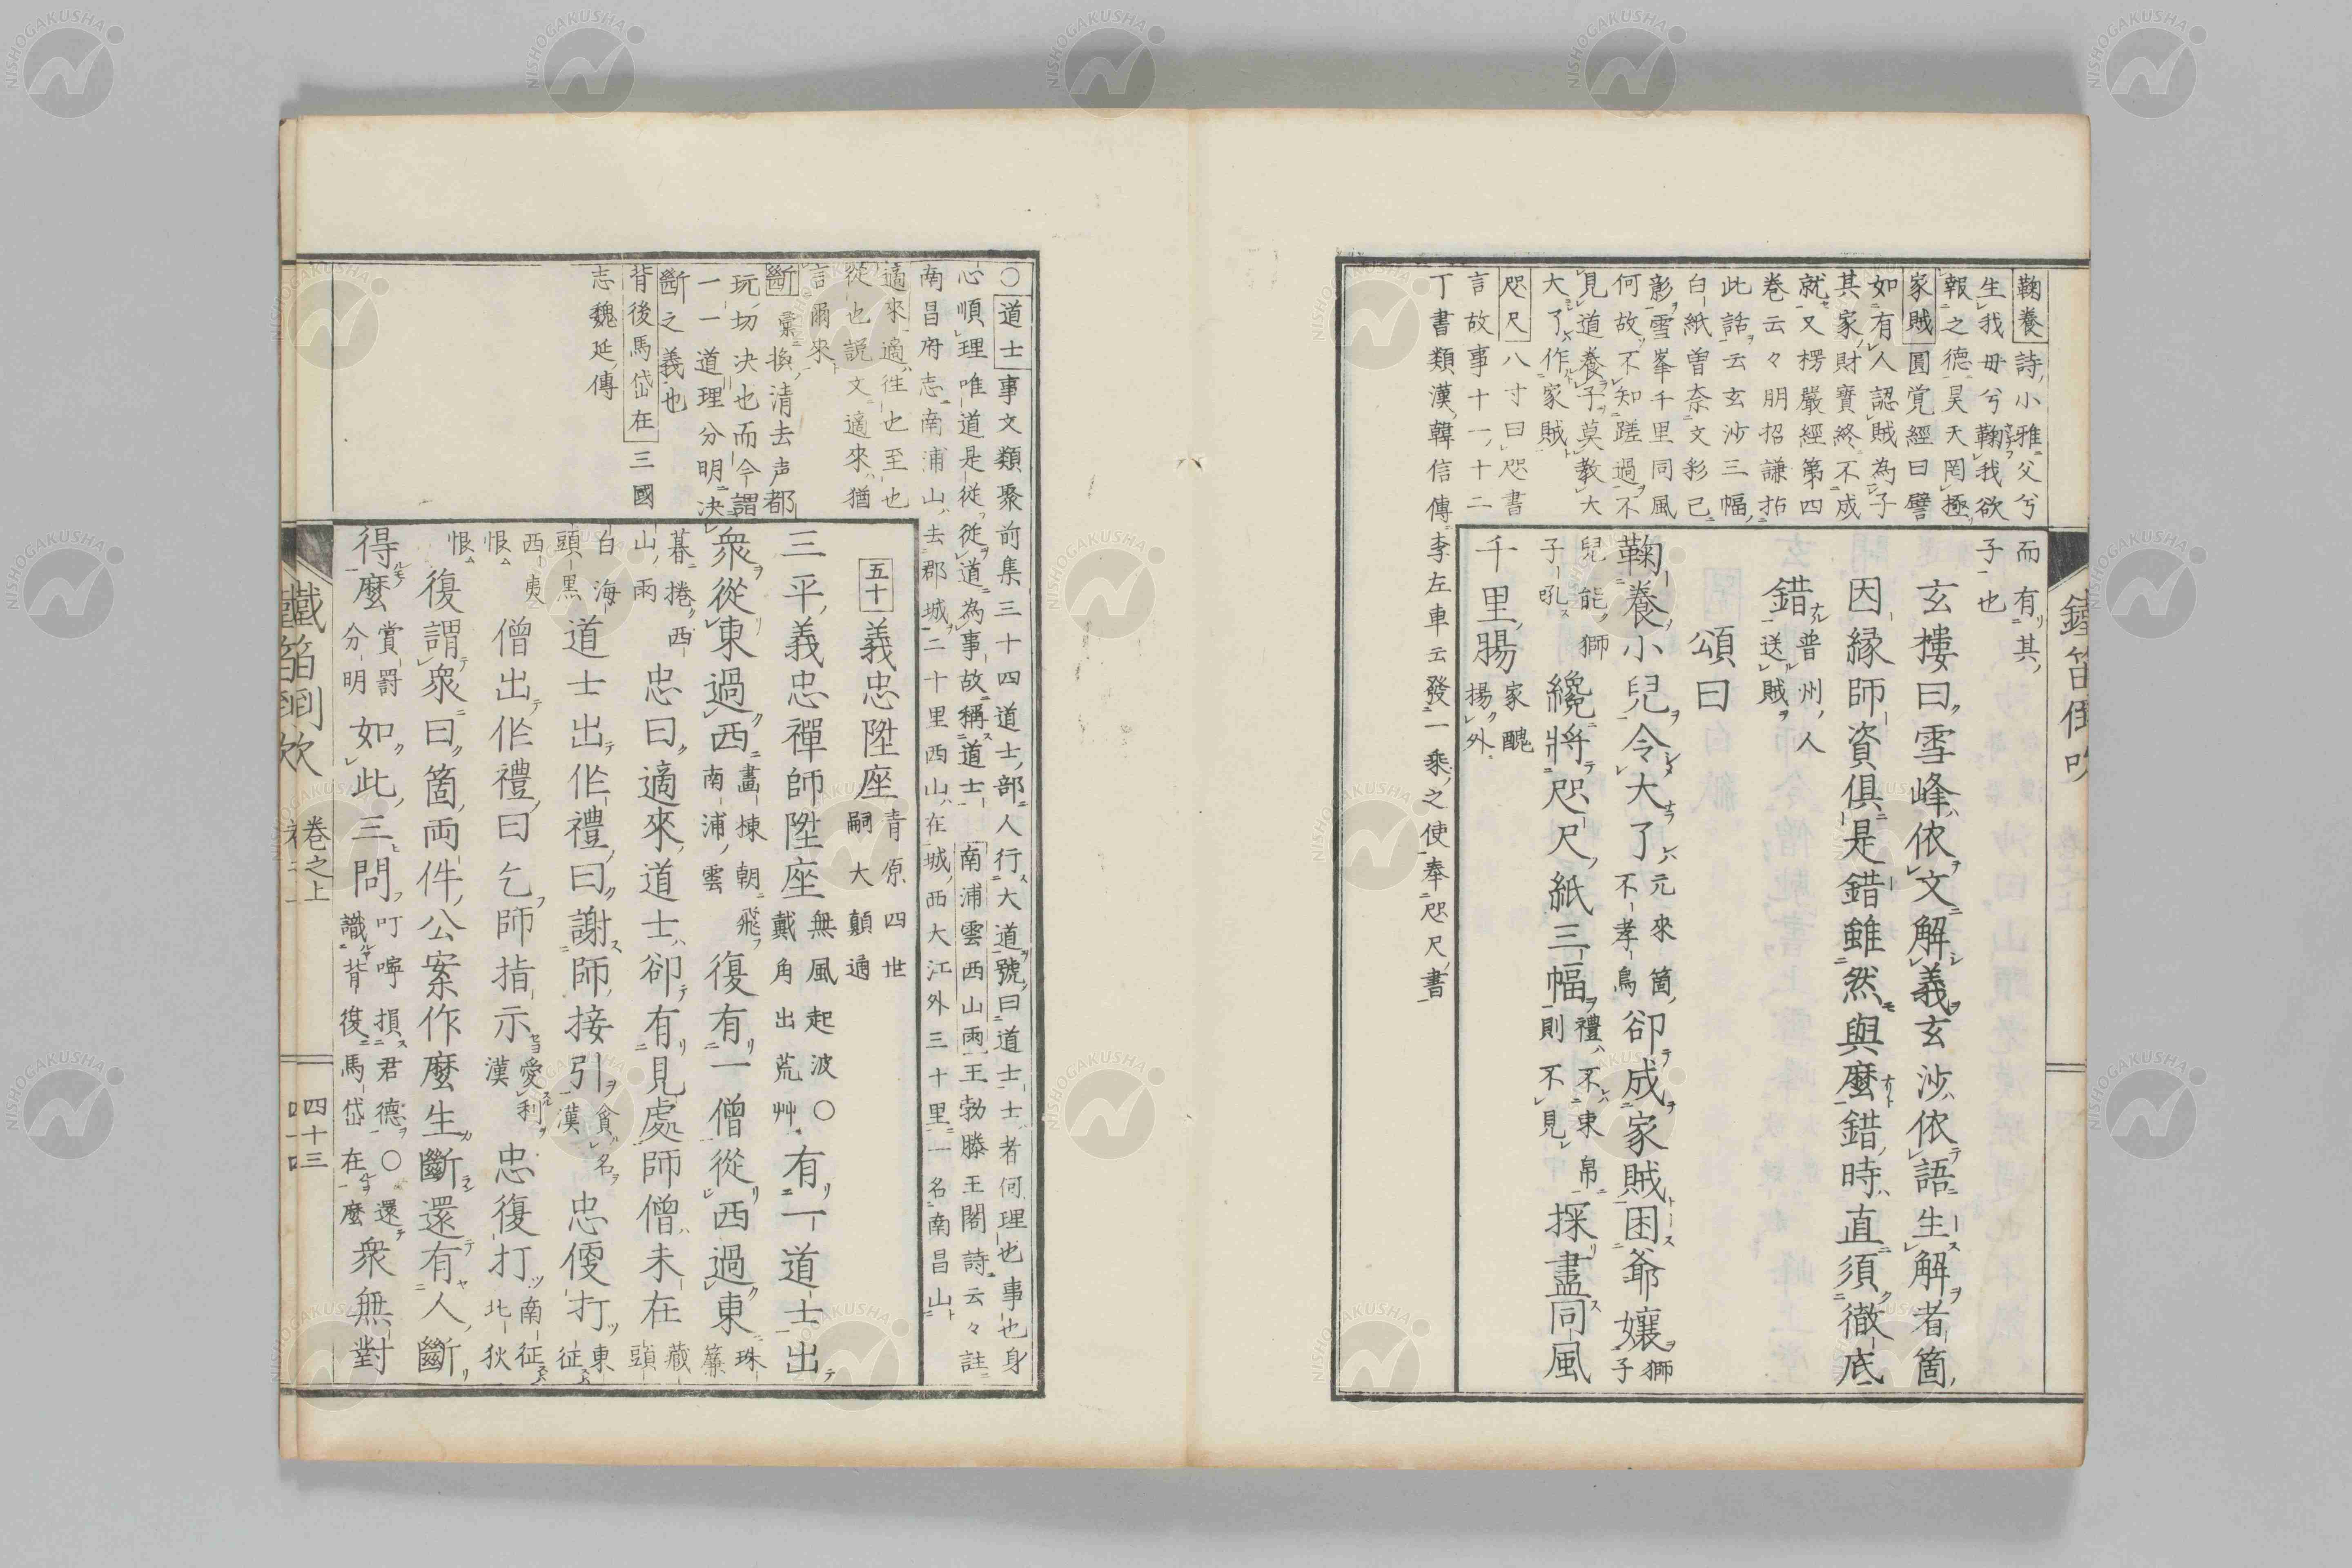 鞠養詩小雅父兮
生我毋兮鞠我欲
報之德昊天罔極
家賊圓覚經曰譬
如有人認賊為子
其家財寶終不成
就又楞嚴經第四
巻云々明招謙拈
此話云玄沙三幅
白紙曽奈文彩已
彰雪峯千里同風
何故不知蹉過不
見道養子莫教大
大了作家賊
咫尺八寸曰咫書
言故事十一十二
丁書類漢韓信傳李左車云發一乘之使奉咫尺書
而有其
子也
玄樓曰雪峰依文解義玄沙依語生解者箇
因縁師資俱是錯雖然與麼錯時直須徹底
錯普州人送賊
頌曰
鞠養小兒令大了元來箇不孝鳥卻成家賊困爺孃獅子
兒能獅子吼纔將咫尺紙三幅禮不東帛則不見採盡同風
千里膓家醜揚外
鐵笛倒吹
○道士事文類聚前集三十四道士部人行大道號曰道士士者何理也事也身
心順理唯道是從從道為事故稱道士 南浦雲西山雨王勃滕王閣詩云々註
南昌府志南浦山去郡城二十里西山在城西大江外三十里一名南昌山
適來適徃也至也
從也説文適來猶
言爾來
斷彙換清去声都
玩切决也而今謂
一一道理分明决
斷之義也
背後馬岱在三國
志魏延傳
五十 義忠陞座青原四世嗣大顛通
三平義忠禪師陞座無風起波○戴角出荒艸有一道士出
衆從東過西畵棟朝飛南浦雲復有一僧從西過東珠簾
暮捲西山雨忠曰適來道士卻有見處師僧未在藏頭
白海頭黒道士出作禮曰謝師接引貪名漢忠便打東征
西夷恨僧出作禮曰乞師指示愛利漢忠復打南征北狄
恨復謂衆曰箇両件公案作麼生斷還有人斷
得麼賞罰分明如此三問叮嚀損君德○還識背復馬岱在麼衆無對
鐵笛倒吹 巻之上 四十三